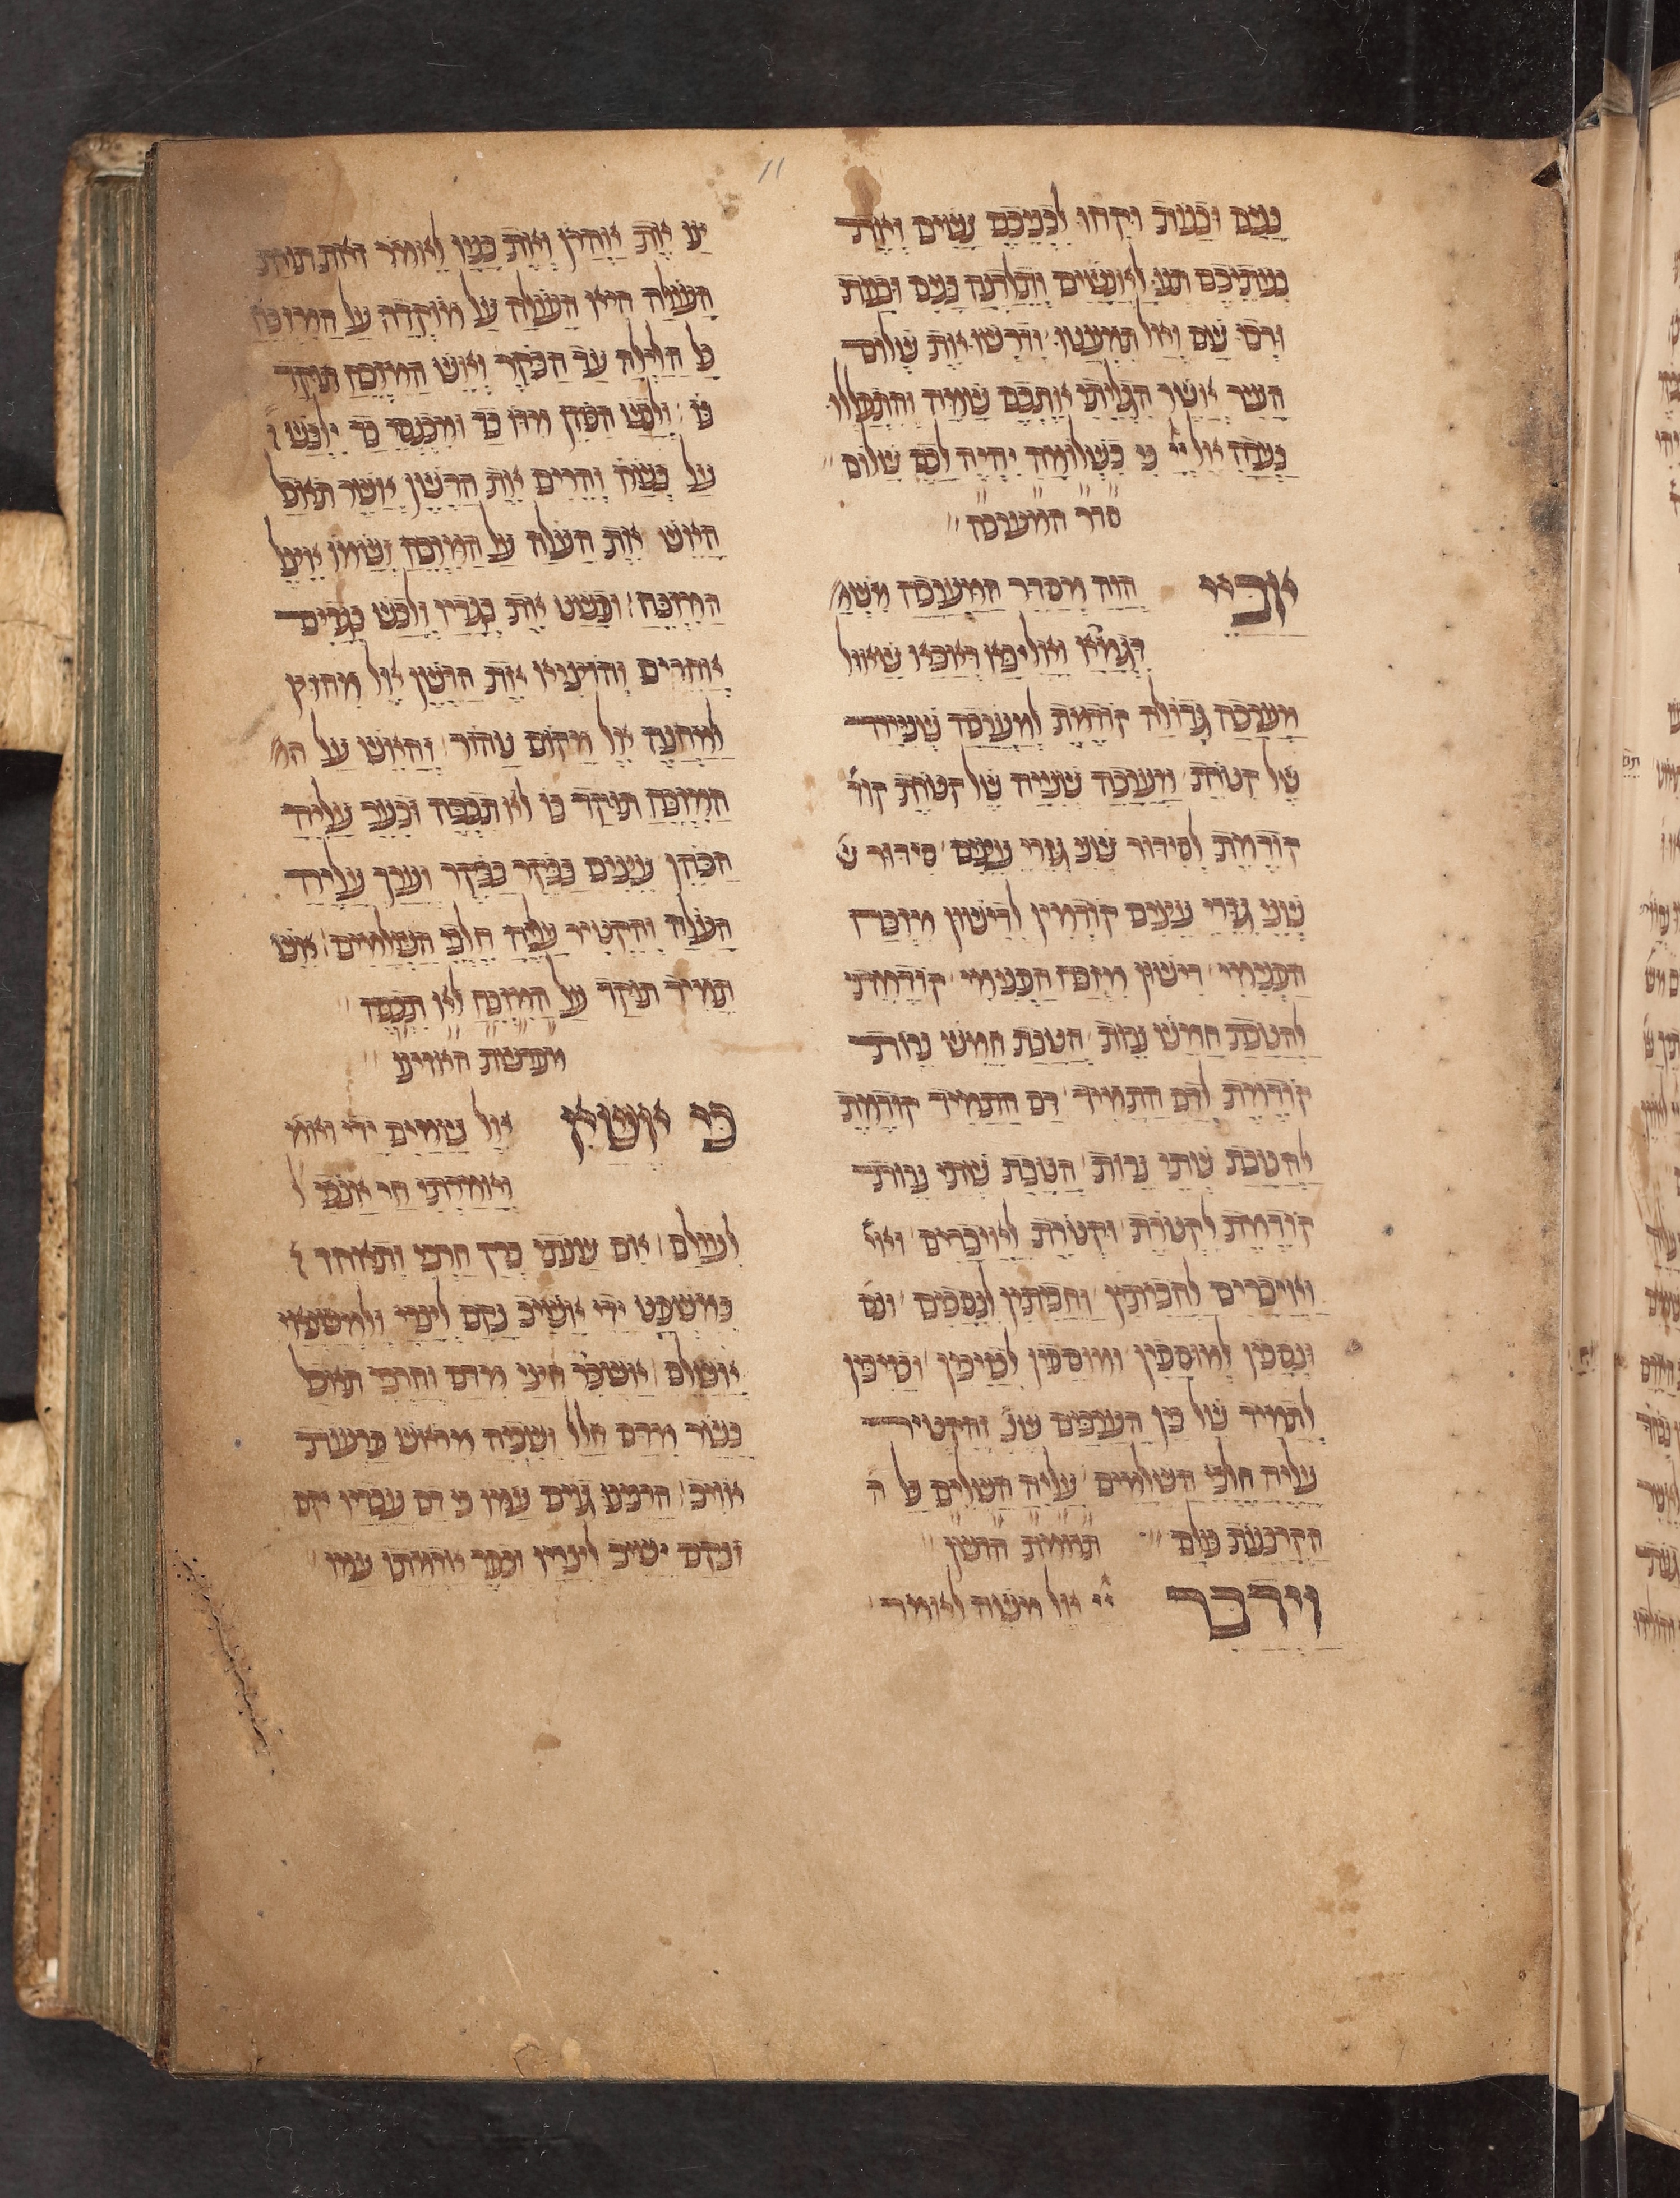 בנים ובנות וקחו לבניכם נשים ואת
בנותיכם תנו לאנשים ותלדנה בנים ובנות
ורבו שם ואל תמעטו ודרשו את שלום
העיר אשר הגליתי אתכם שמה והתפללו
בעדה אל יי כי בשלומה יהיה לכם שלום
סדר המערכה
אביי הוה מסדר המערכה משמ
דגמרא ואליבא דאבא שאול
מערכה גדולה קודמת למערכה שנייה
של קטורת מערכה שנייה של קטורת קוד
קודמת לסידור שני גזרי עצים סידור ש
שני גזרי עצים קודמין לדישון מזבח
הפנימי דישון מזבח הפנימי קודמת
להטבת חמש נרות הטבת חמש נרות
קודמת לדם התמיד דם התמיד קודמת
להטבת שתי נרות הטבת שתי נרות
קודמת לקטורת וקטורת לאיברים ואי
ואיברים לחביתין וחביתין לנסכים ונס
ונסכין למוספין ומוספין לבזיכין ובזיכין
לתמיד של בין הערבים שנ והקטיר
עליה חלבי השלמים עליה השלים כל ה
הקרבנות כולם תרומת הדשן
וידבר יי אל משה לאומר
צו את אהרן ואת בניו לאומר זאת תורת
העולה היא העולה על מוקדה על המזבח
כל הלילה עד הבקר ואש המזבח תוקד
בו ולבש הכהן מדו בד ומכנסי בד ילבש
על בשרו והרים את הדשן אשר תאכל
האש את העולה על המזבח ושמו אצל
המזבח ופשט את בגדיו ולבש בגדים
אחרים והוציא את הדשן אל מחוץ
למחנה אל מקום טהור והאש על המ
המזבח תוקד בו לא תכבה ובער עליה
הכהן עצים בבקר בבקר וערך עליה
העולה והקטיר עליה חלבי השלמים אש
תמיד תוקד על המזבח לא תכבה
מפרשת האזינו
כי אשא אל שמים ידי ואמ
ואמרתי חי אנכי ל
לעולם אם שנותי ברק חרבי ותאחז
במשפט ידי אשיב נקם לצרי ולמשנאי
אשלם אשכיר חצי מדם וחרבי תאכל
בשר מדם חלל ושביה מראש פרעות
אויב הרנינו גוים עמו כי דם עבדיו יקם
ונקם ישיב לצריו וכפר אדמתו עמו